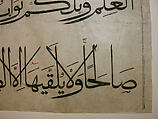 العلم ويلكم ثواب
صالحا ولا يلقيها الا الص